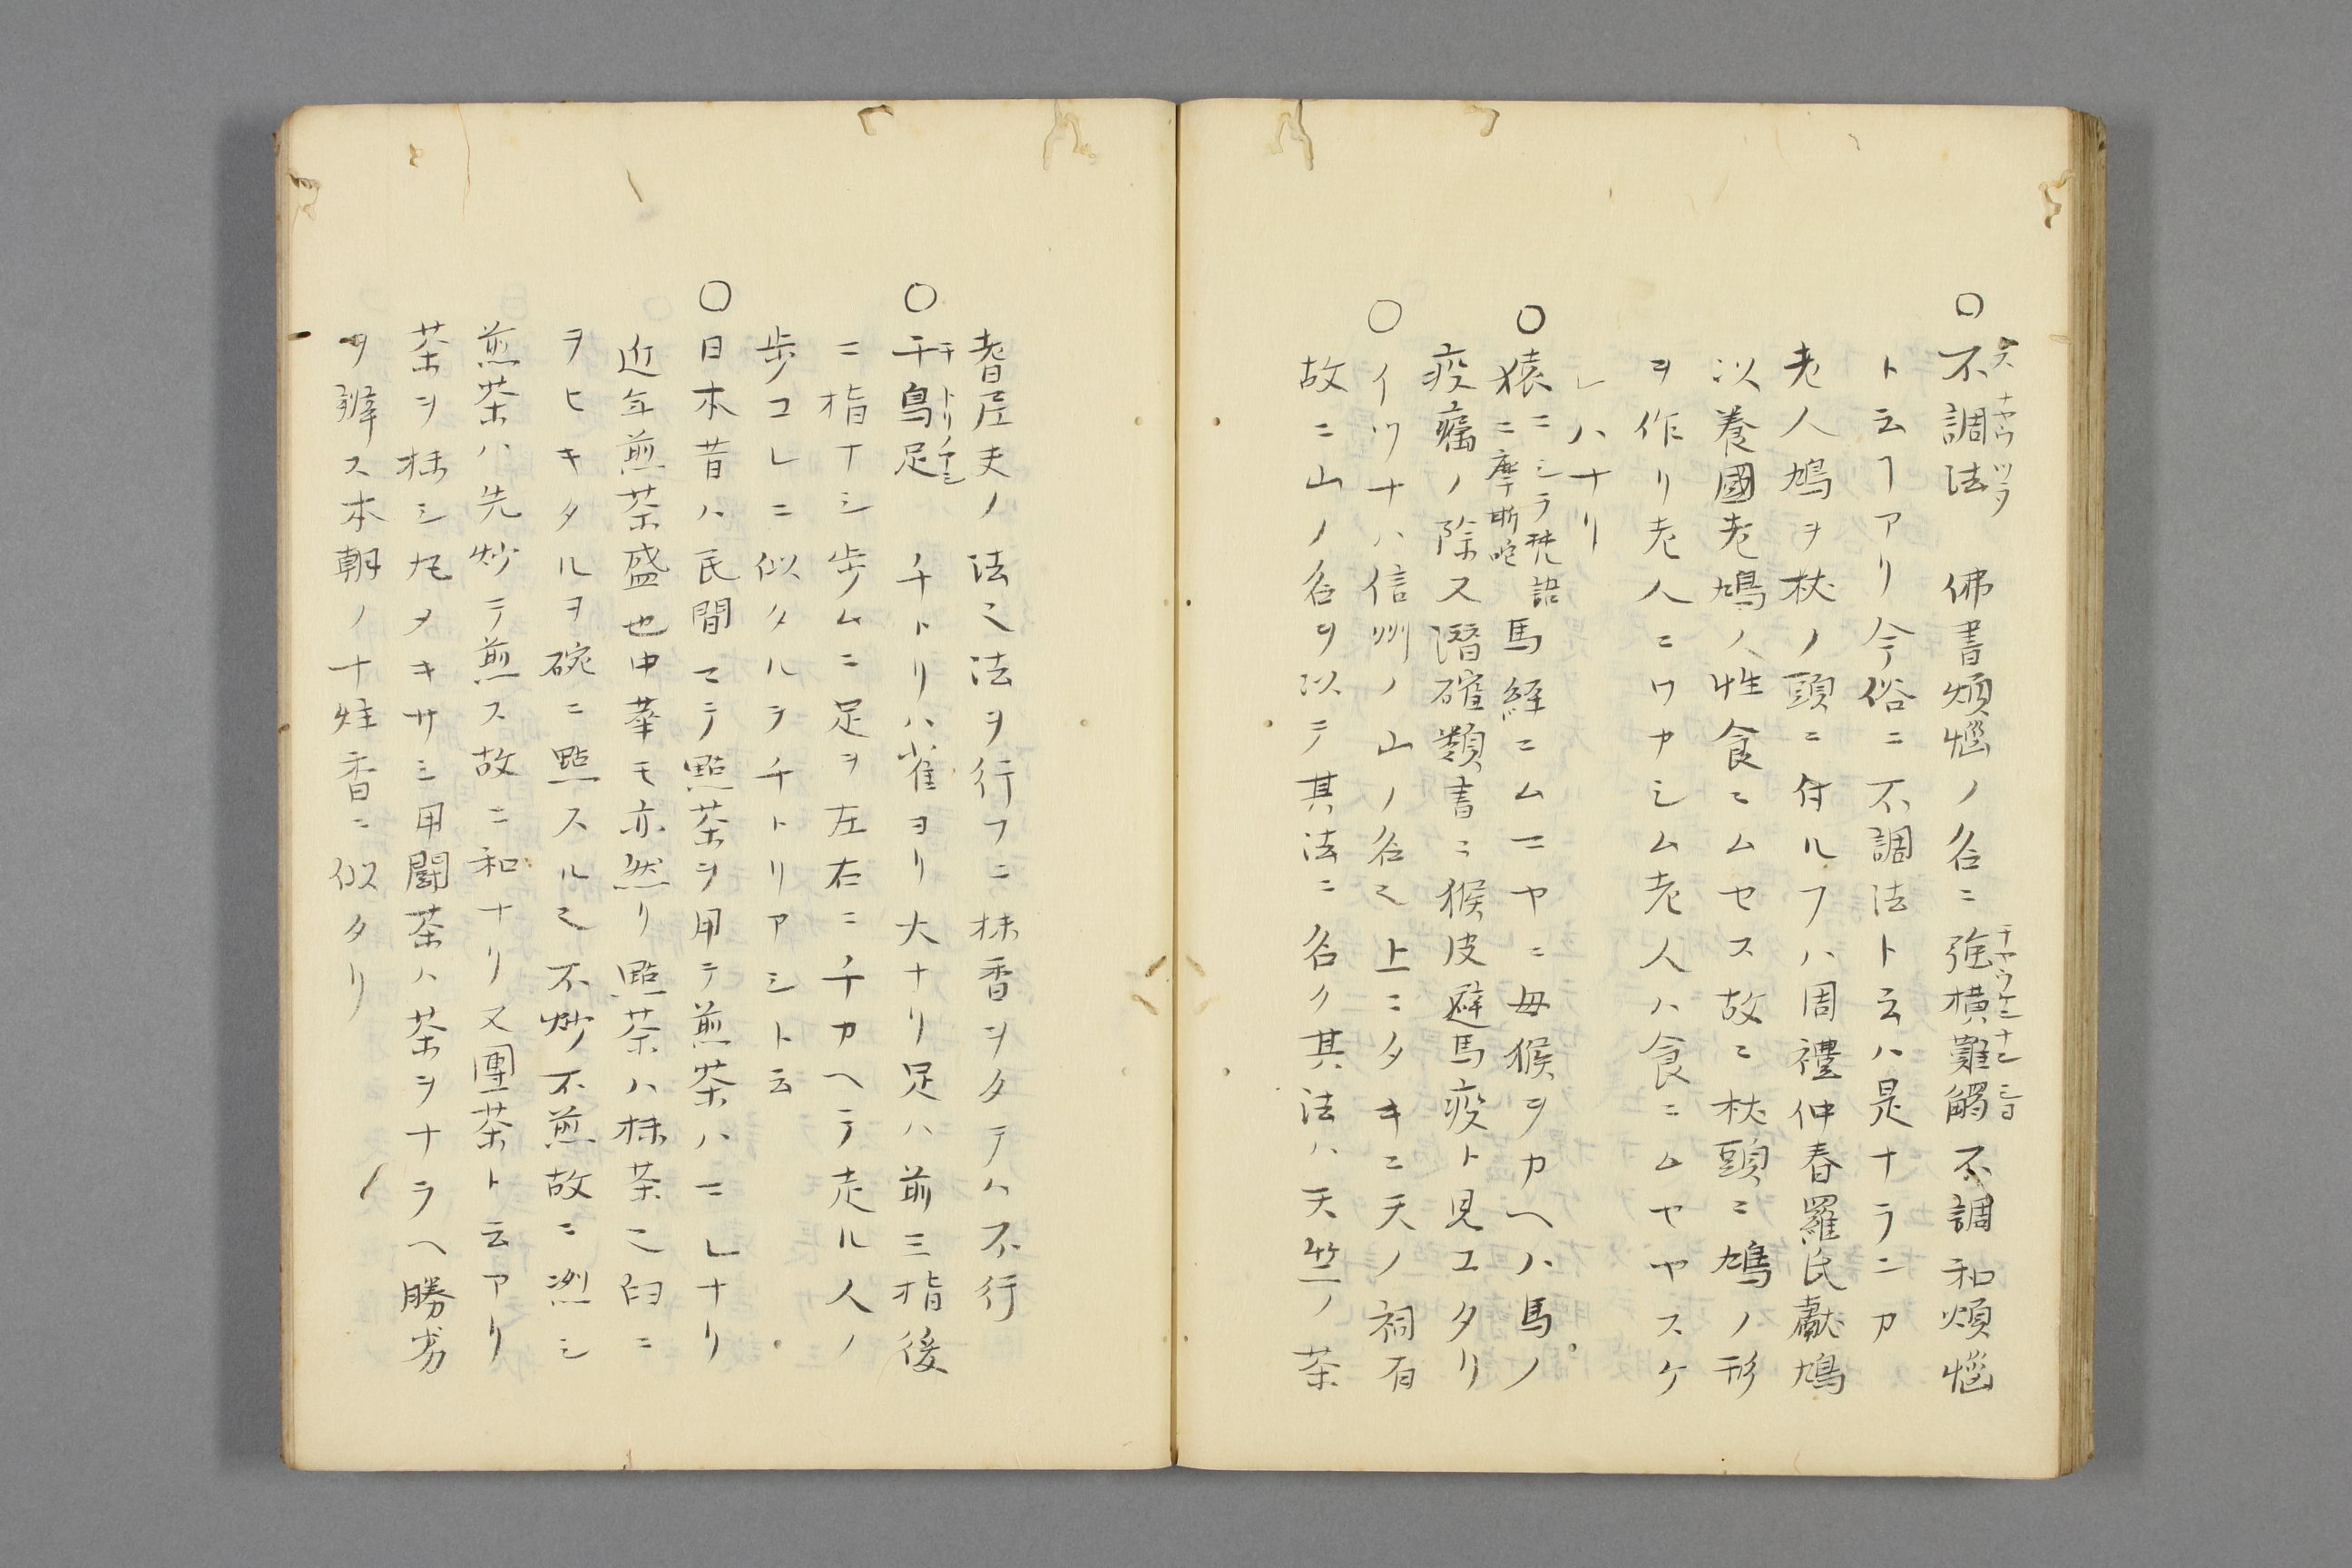 〇不調法　佛書煩惱ノ名ニ強横難觸不調和煩惱
ト云ヿアリ今俗ニ不調法ト云ハ是ナラニカ
老人鳩ヲ杖ノ頭ニ付ルフハ周禮仲春羅氏獻鳩
以養國老鳩ノ性食ニムセス故ニ杖頭ニ鳩ノ形
ヲ作リ老人ニワヤシム老人ハ食ニムセヤスケ
レハナリ
〇猿ニシラ梵語ニ摩斯吒馬経ニムマヤニ毎猴ヲカヘハ馬ノ
疫癘ノ除ス潜確類書ニ猴皮避馬疫ト見エタリ
〇イツナハ信州ノ山ノ名也上ニタキニ天ノ祠有
故ニ山ノ名ヲ以テ其法ニ名ク其法ハ天竺ノ茶
耆尼夫ノ法也法ヲ行フニ抹香ヲタテハ不行
〇千鳥足　チトリハ雀ヨリ大ナリ足ハ前三指後
ニ指ナシ歩ムニ足ヲ左右ニチカヘテ走ル人ノ
歩コレニ似タルヲチトリアシト云
〇日本昔ハ民間マテ點茶ヲ用テ煎茶ハマレナリ
近年煎茶盛也中華モ亦然リ點茶ハ抹茶也臼ニ
ヲヒキタルヲ碗ニ點スル也不炒不煎故ニ冽シ
煎茶ハ先炒テ煎ス故ニ和ナリ又團茶ト云アリ
茶ヲ抹シ丸メキサミ用闘茶ハ茶ヲナラヘ勝劣
ヲ辨ス本朝ノ十炷香ニ似タリ